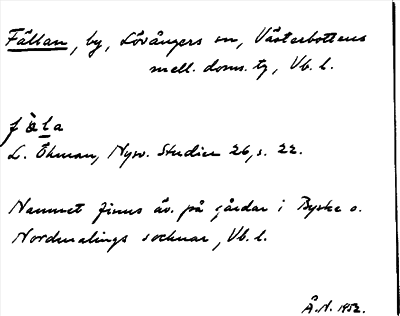 Fällan, by, Lövångers sn, Västerbottens
mell. doms. tg, Vb. l.
fä̀la
L. Öhman, Nysv. Studier 26, s. 22.
Namnet finns äv. på gårdar i Byske o.
Nordmalings socknar, Vb. l.
Å.N. 1952.